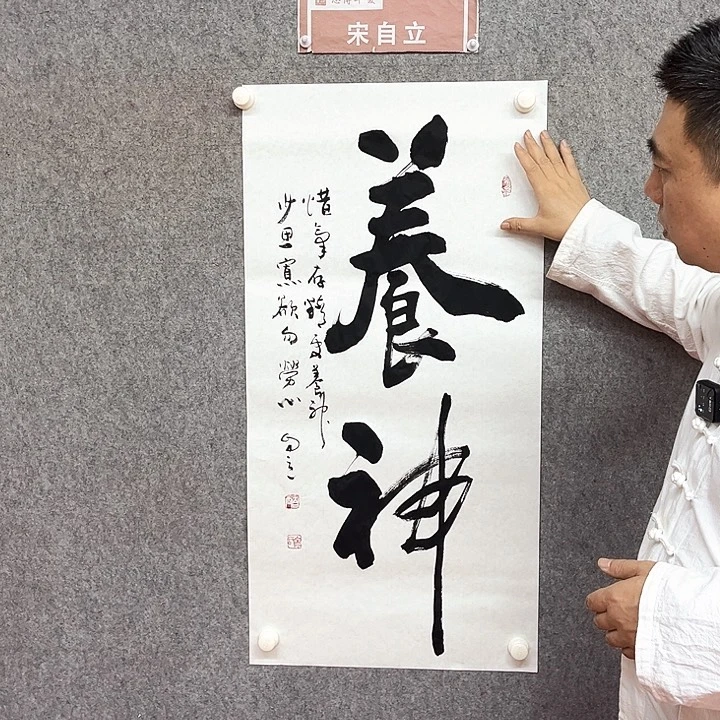 宋自立
養神
惜氣存精更養神
少思寡欲勿勞心 自立